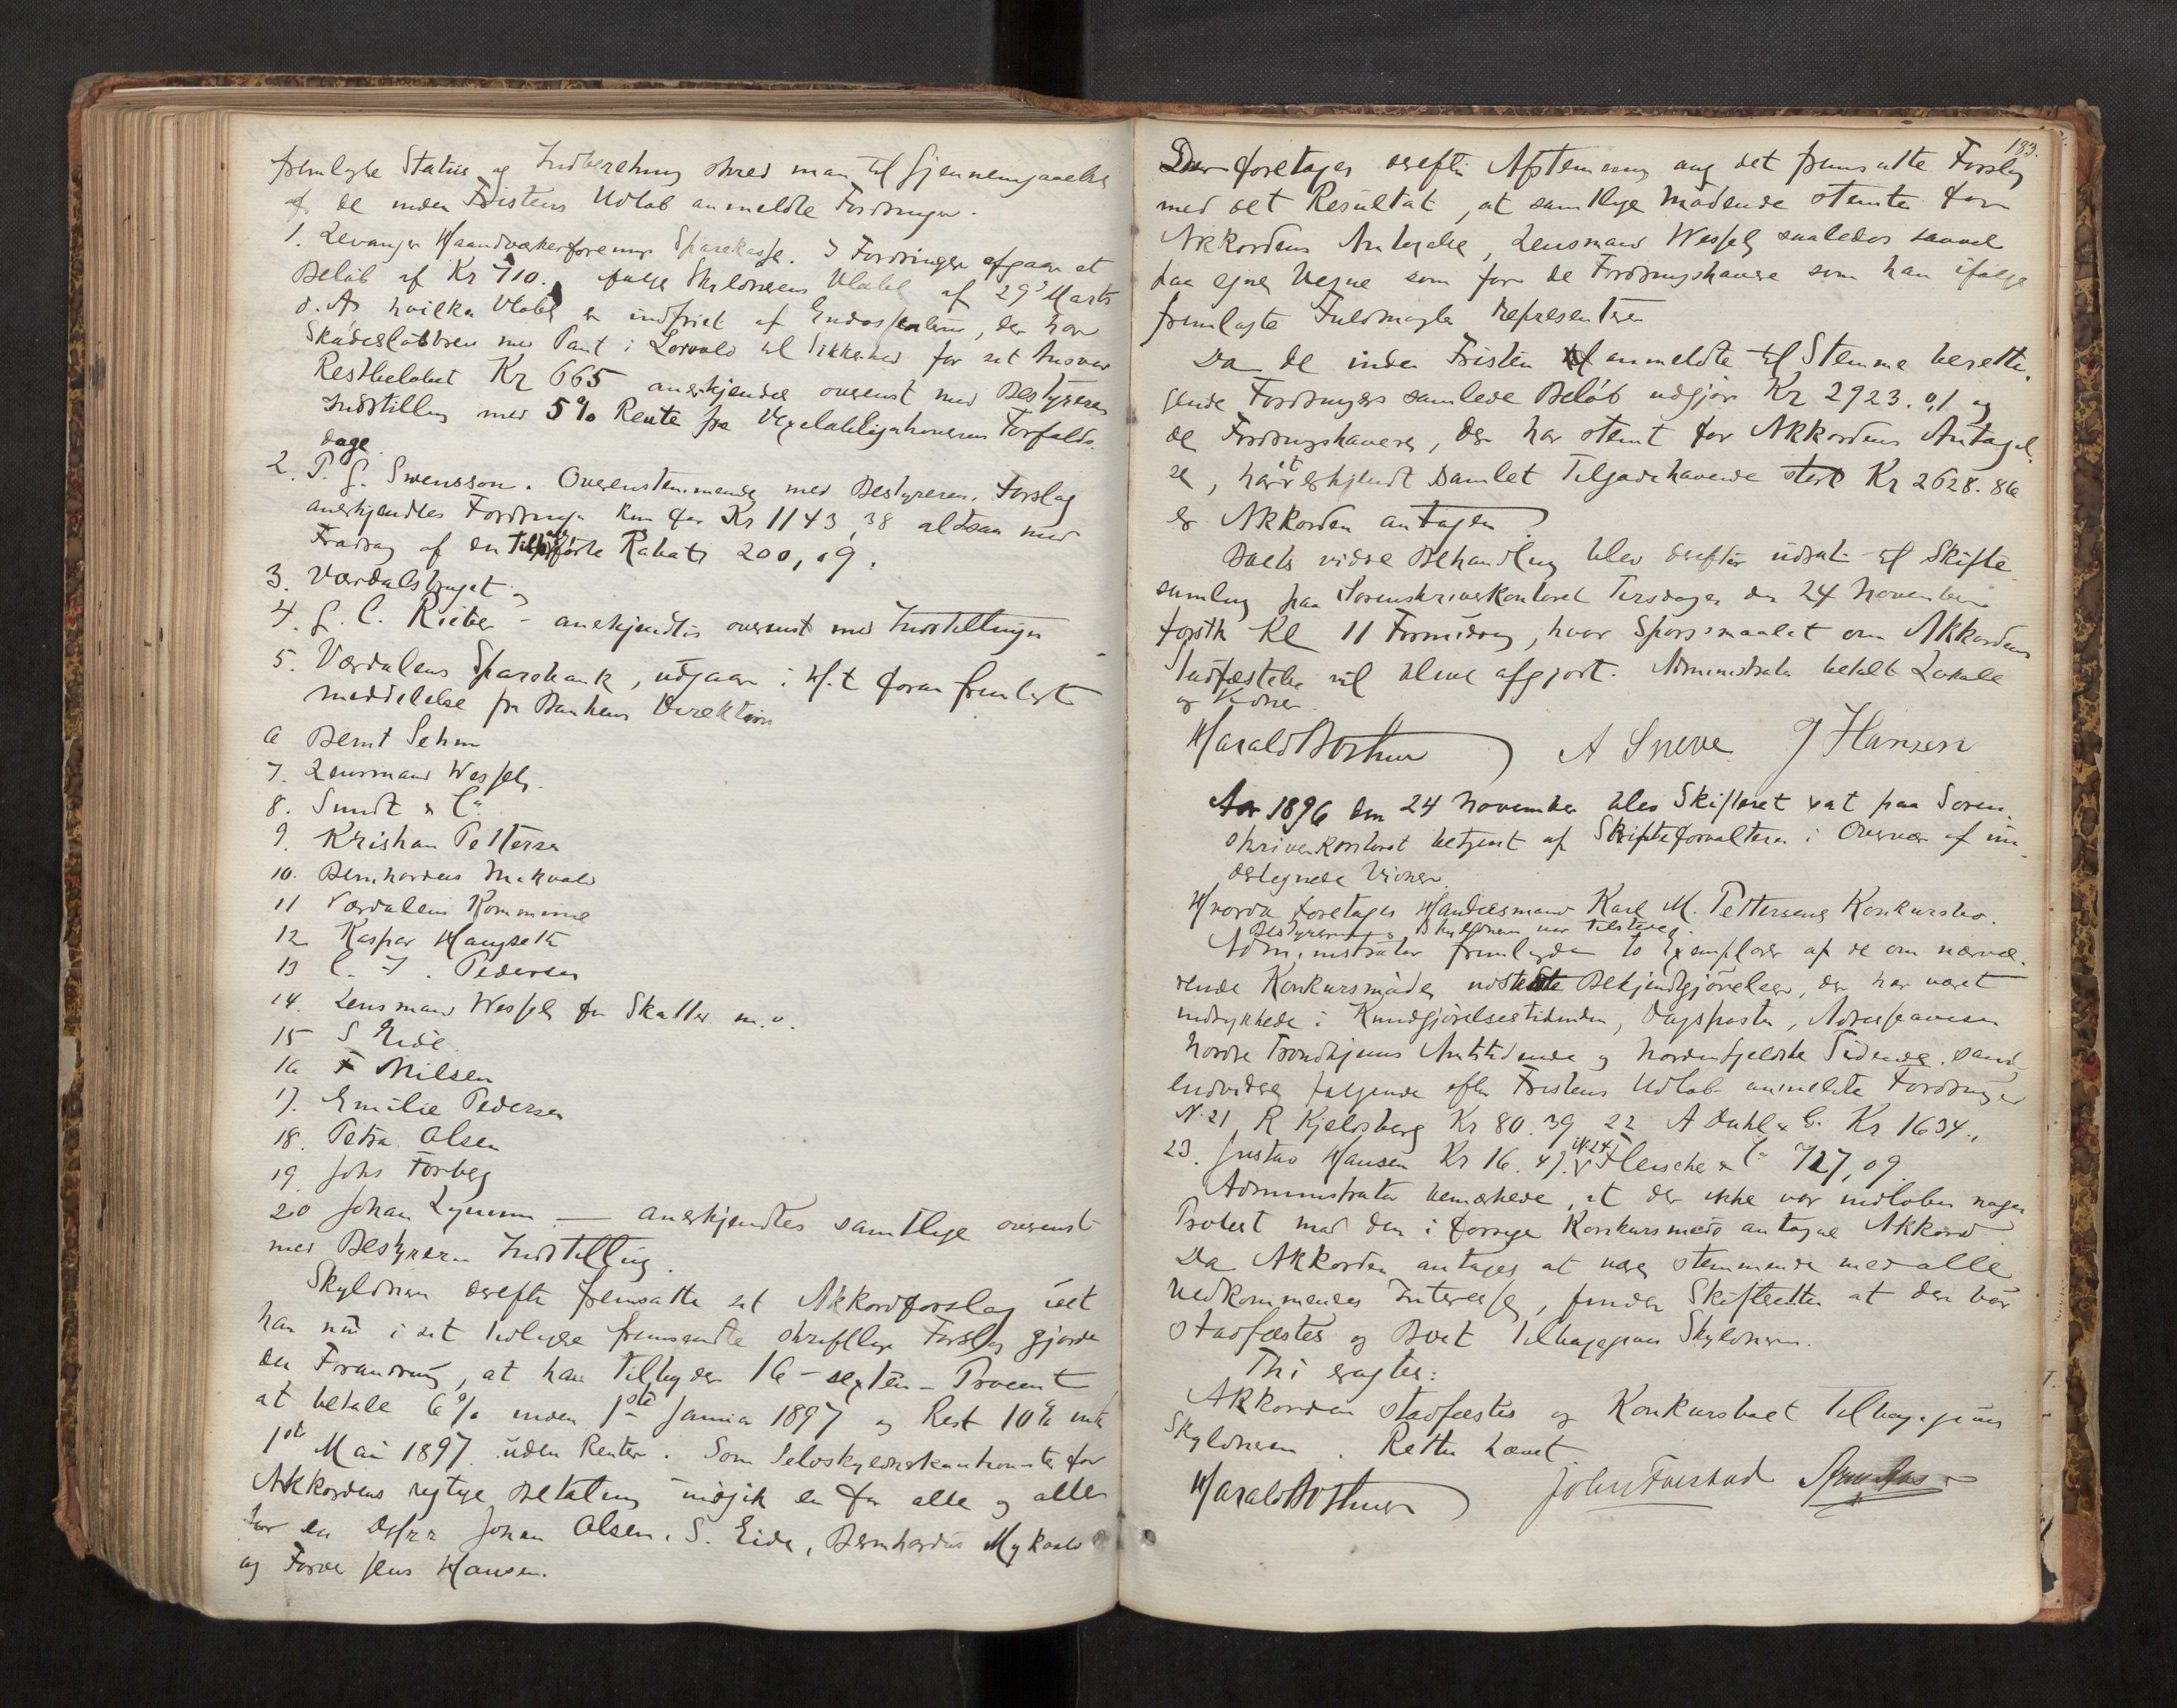 fremlagte Status og Indberetning skred man til Gjennemgaaelse
af de inden Fristens Udløb anmeldte Fordringer.
1. Levanger Haandværkerforenings Sparekasse. I Fordringen afgaar et
Beløb af Kr 710. ifølge Skyldnerens Vexel af 29 Marts
d. A. hvilken Vexel er indfriet af Endossenterne, der har
Skadesløsbrev med Pant i Løsøre til Sikkerhed for sit Ansvar
Restbeløbet Kr 665 anerkjendes overenst med Bestyrerens
Indstilling med 5% Rente fra Vexelobligationens Forfalds
dage.
2. P. G. Swensson. Overenstemmende med Bestyrerens Forslag
anerkjendtes Fordringen kun for Kr 1143,38 altsaa med
Fradrag af den tilførte Rabat 200,09.
3. Værdalsbruget og
4. G. C. Rieber - anerkjendtes overenst med Indstillingen
5. Værdalens Sparebank, udgaar i H.t foran fremlagt
meddelelse fra Bankens Direktion
6 Bernt Sehm
7. Lensmand Wessel.
8. Sundt & Co
9. Kristian Pettersen
10. Bernhardus Mikvold
11 Værdalens Kommune
12 Kaspar Haugseth
13 C. J. Pedersen
14. Lensmand Wessel for Skatter m.v.
15 S Eide.
16 F Nilsen
17. Emilie Pedersen
18. Petra Olsen
19. Johs Forberg
20 Johan Lynum — anerkjendtes samtlige overenst
med Bestyrerens Indstilling.
Skyldneren derefter fremsatte sit Akkordforslag idet
han nu i sit tidligere fremsendte skriftlige Forslag gjorde
den Forandring, at han tilbyder 16 - sexten - Procent
at betale 6% inden 1ste Januar 1897 og Rest 10% inden
1ste Mai 1897 uden Renter. Som Selvskyldnerkautionister for
Akkordens rigtige Betaling indgik en for alle og alle
for en Johan Olsen, S. Eide, Bernhardus Mykvold
og Farver Jens Hansen.
183.
Der foretages derefter Afstemning ang det fremsatte Forslag
med det Resultat, at samtlige Mødende stemte for
Akkordens Antagelse, Lensmand Wessel saaledes saavel
paa egne Vegne som for de Fordringshavere som han ifølge
fremlagte Fuldmagter representerer
Da de inden Fristen anmeldte til Stemme beretti-
gende Fordringers samlede Beløb udgjør Kr 2923.01 og
de Fordringshavere, der har stemt for Akkordens Antagel-
se, har et erkjendt samlet Tilgodehavende stort Kr 2628.86
er Akkorden antagen.
Boets videre Behandling blev derefter udsat til Skifte-
samling paa Sorenskriverkontoret Tirsdagen den 24 November
førstk Kl 11 Formiddag, hvor Spørgsmaalet om Akkordens
Stadfæstelse vil blive afgjort. Administrator betalt Lokale
og Vidner.
Harald Bothner A Sneve J Hansen
Aar 1896 den 24 November blev Skifteret sat paa Soren-
skriverkontoret betjent af Skifteforvalteren i Overvær af un-
dertegnede Vidner
Hvorda foretages Handelsmand Karl M. Pettersens Konkursbo.
Bestyreren og Skyldneren var tilstede.
Administrator fremlagde to Exemplarer af de om nærvæ-
rende Konkursmøder udstedte Bekjendtgjørelser, der har været
indrykkede i Kundgjørelsestidenden, Dagsposten, Adresseavisen
Nordre Trondhjems Amtstidende og Nordenfjeldske Tidende, samt
endvidere følgende efter Fristens Udløb anmeldte Fordringer
N. 21 R Kjeldsberg Kr 80.39 22 A Dahl & Co Kr 1634.,
23. Gustav Hansen Kr 16.47. N 24 Fleischer & Co 727,09.
Administrator bemærkede, at der ikke var indløben nogen
Protest mod den i forrige Konkursmøde antagne Akkord
Da Akkorden antages at være stemmende med alle
Vedkommendes Interesser, finder Skifteretten at den bør
stadfæstes og Boet tilbagegives Skyldneren.
Thi eragtes:
Akkorden stadfæstes og Konkursboet tilbagegives
Skyldneren. Retten hævet
Harald Bothner John Fuestad